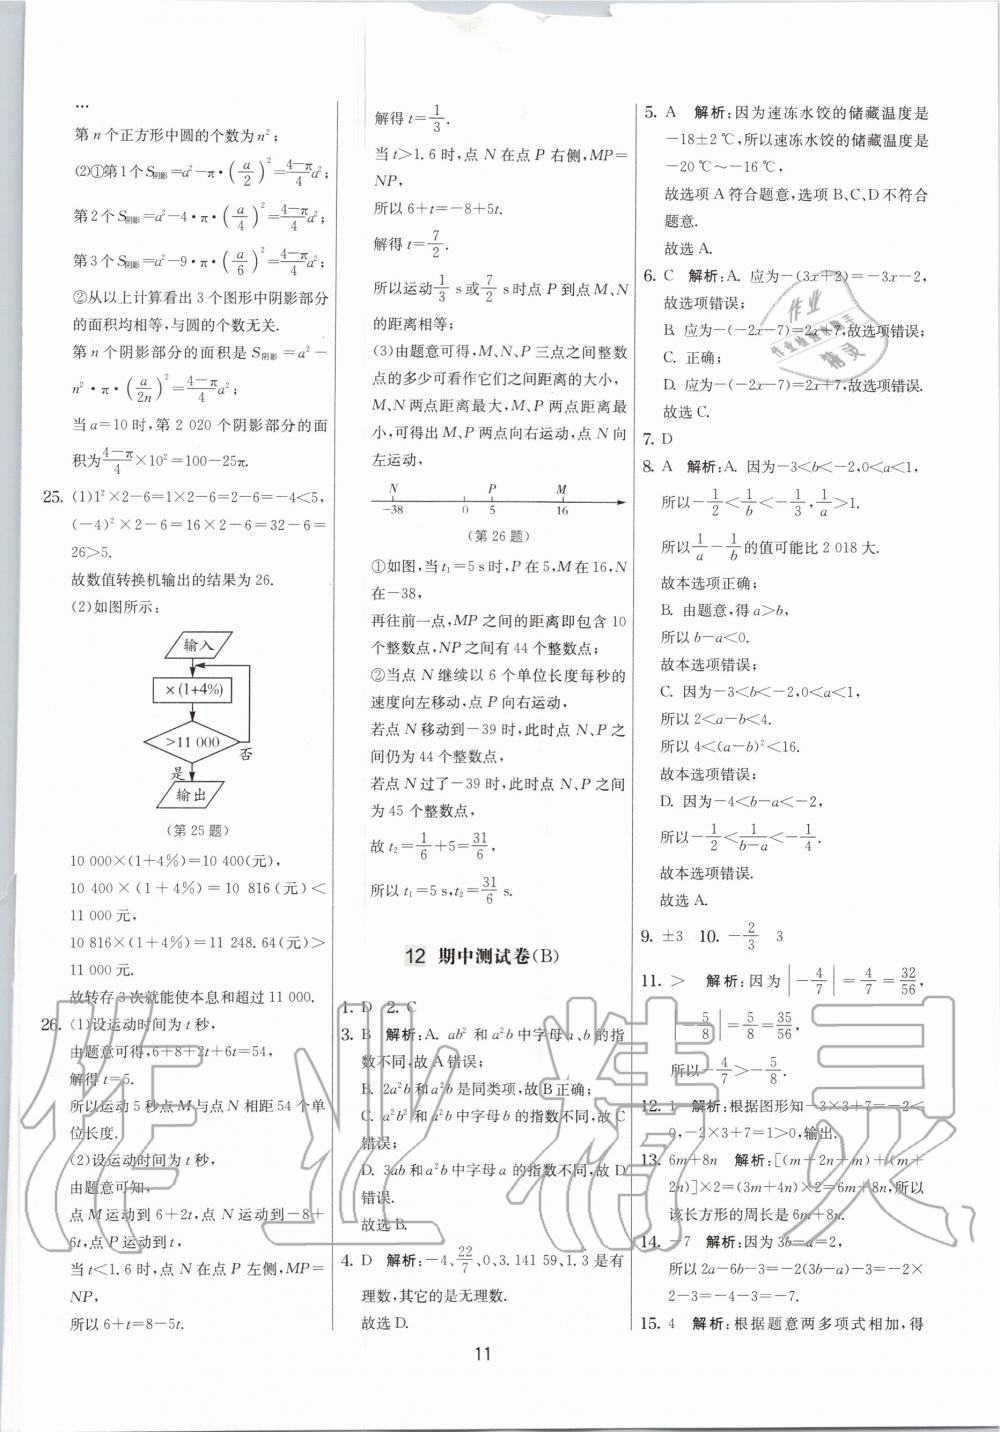 …
第 n 个正方形中圆的个数为 n²;
(2)①第 1 个 S阴影=a²-π·(a/2)²=(4-π)/4 a²;
第 2 个 S阴影=a²-4·π·(a/4)²=(4-π)/4 a²;
第 3 个 S阴影=a²-9·π·(a/6)²=(4-π)/4 a²;
②从以上计算看出 3 个图形中阴影部分
的面积均相等,与圆的个数无关.
第 n 个阴影部分的面积是 S阴影=a²-
n²·π·(a/2n)²=(4-π)/4 a²;
当 a=10 时,第 2 020 个阴影部分的面
积为(4-π)/4×10²=100-25π.
25. (1)1²×2-6=1×2-6=2-6=-4<5,
(-4)²×2-6=16×2-6=32-6=
26>5.
故数值转换机输出的结果为 26.
(2)如图所示:
输入
×(1+4%)
>11 000
否
是
输出
(第 25 题)
10 000×(1+4%)=10 400(元),
10 400×(1+4%)=10 816(元)<
11 000 元,
10 816×(1+4%)=11 248.64(元)>
11 000 元.
故转存 3 次就能使本息和超过 11 000.
26. (1)设运动时间为 t 秒,
由题意可得,6+8+2t+6t=54,
解得 t=5.
所以运动 5 秒点 M 与点 N 相距 54 个单
位长度.
(2)设运动时间为 t 秒,
由题意可知,
点 M 运动到 6+2t,点 N 运动到-8+
6t,点 P 运动到 t,
当 t<1.6 时,点 N 在点 P 左侧,MP=
NP,
所以 6+t=8-5t.
解得 t=1/3.
当 t>1.6 时,点 N 在点 P 右侧,MP=
NP,
所以 6+t=-8+5t.
解得 t=7/2.
所以运动1/3 s 或7/2 s 时点 P 到点 M、N
的距离相等;
(3)由题意可得,M、N、P 三点之间整数
点的多少可看作它们之间距离的大小,
M、N 两点距离最大,M、P 两点距离最
小,可得出 M、P 两点向右运动,点 N 向
左运动,
N P M
-38 0 5 16
(第 26 题)
①如图,当 t₁=5 s 时,P 在 5,M 在 16,N
在-38,
再往前一点,MP 之间的距离即包含 10
个整数点,NP 之间有 44 个整数点;
②当点 N 继续以 6 个单位长度每秒的
速度向左移动,点 P 向右运动,
若点 N 移动到-39 时,此时点 N、P 之
间仍为 44 个整数点,
若点 N 过了-39 时,此时点 N、P 之间
为 45 个整数点,
故 t₂=1/6+5=31/6,
所以 t₁=5 s,t₂=31/6 s.
12 期中测试卷(B)
1. D 2. C
3. B 解析:A. ab² 和 a²b 中字母 a、b 的指
数不同,故 A 错误;
B. 2a²b 和 a²b 是同类项,故 B 正确;
C. a²b² 和 a²b 中字母 b 的指数不同,故 C
错误;
D. 3ab 和 a²b 中字母 a 的指数不同,故 D
错误.
故选 B.
4. D 解析:-4、22/7、0、3.141 59、1.3 是有
理数,其它的是无理数.
故选 D.
5. A 解析:因为速冻水饺的储藏温度是
-18±2 ℃,所以速冻水饺的储藏温度是
-20 ℃~-16 ℃,
故选项 A 符合题意,选项 B、C、D 不符合
题意.
故选 A.
6. C 解析:A. 应为-(3x+2)=-3x-2,
故选项错误;
B. 应为-(-2x-7)=2x+7,故选项错误;
C. 正确;
D. 应为-(-2x-7)=2x+7,故选项错误.
故选 C.
7. D
8. A 解析:A. 因为-3<b<-2,0<a<1,
所以-1/2<1/b<-1/3,1/a>1.
所以1/a-1/b的值可能比 2 018 大.
故本选项正确;
B. 由题意,得 a>b,
所以 b-a<0.
故本选项错误;
C. 因为-3<b<-2,0<a<1,
所以 2<a-b<4.
所以 4<(a-b)²<16.
故本选项错误;
D. 因为-4<b-a<-2,
所以-1/2<1/(b-a)<-1/4.
故本选项错误.
故选 A.
9. ±3 10. -2/3 3
11. > 解析:因为|-4/7|=4/7=32/56,
|-5/8|=5/8=35/56,
所以-4/7>-5/8.
12. 1 解析:根据图形知-3×3+7=-2<
0,-2×3+7=1>0,输出.
13. 6m+8n 解析:[(m+2n+m)+(m+
2n)]×2=(3m+4n)×2=6m+8n,所以
该长方形的周长是 6m+8n.
14. -7 解析:因为 3b-a=2,
所以 2a-6b-3=-2(3b-a)-3=-2×
2-3=-4-3=-7.
15. 4 解析:根据题意两多项式相加,得
11
作业精灵
作业
作业检查小助手
精灵